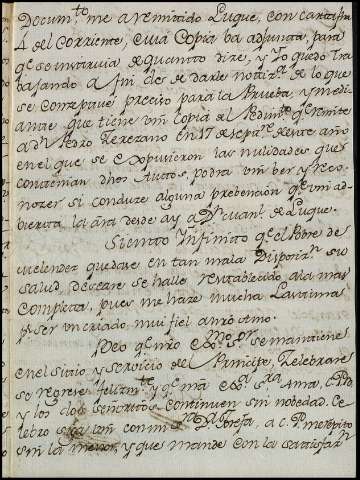 Docum.to me a remitido Luque, con carta fha
4 del Corriente, cuia Copia ba adjunta, para
q.e se instruia de quanto dize, y Yo quedo tra
bajando a fin de darle notiz.a de lo que
se Contempave preciso para la Prueba, y medi
ante que tiene vm copia del Pedim.to q.e remite
a d.n Pedro Terezano en 17 de sep.re de este año
en el que se expusieron las nulidades que
contenian dhos Autos, podra vm ber y reco
nozer si conduze alguna prebencion q.e vm ad
bierta la ara desde ay a D.n Juan de Luque.
Siento Infinito q.e el Pobre de
quedase en tan mala Disposiz.n su
salud, deseare se halle rentablecido a la mas
Completa, pues me haze mucha Lastima
p.r ser un criado mui fiel a mi Amo.
Veo q.e nro se mantiene
en el sitio, y servicio del Principe, Zelebrare
se regrese felizm.te y q.e mi S.ra Ama,
y los dos Señoritos continuen sin nobedad. Ze
lebro vm con mi a repito
sin la menor, y que mande con la satisfaz.n